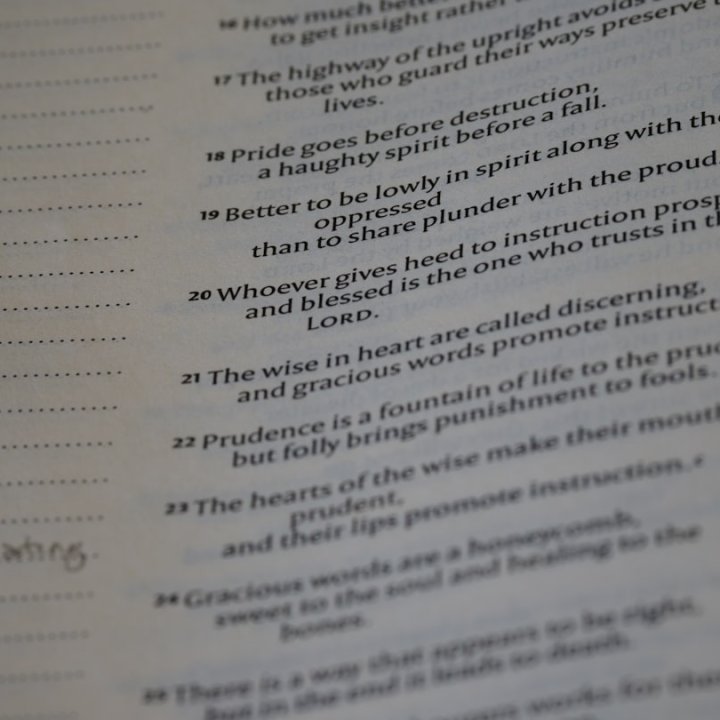 16 How much better
to get insight rather
17 The highway of the upright avoids
those who guard their ways preserve
lives.
18 Pride goes before destruction,
a haughty spirit before a fall.
19 Better to be lowly in spirit along with the
oppressed
than to share plunder with the proud.
20 Whoever gives heed to instruction prosp
and blessed is the one who trusts in th
LORD.
21 The wise in heart are called discerning,
and gracious words promote instruct
22 Prudence is a fountain of life to the prud
but folly brings punishment to fools.
23 The hearts of the wise make their mouth
prudent,
and their lips promote instruction.
ating.
24 Gracious words are a honeycomb,
sweet to the soul and healing to the
bones.
25 There is a way that appears to be right,
but in the end it leads to death.